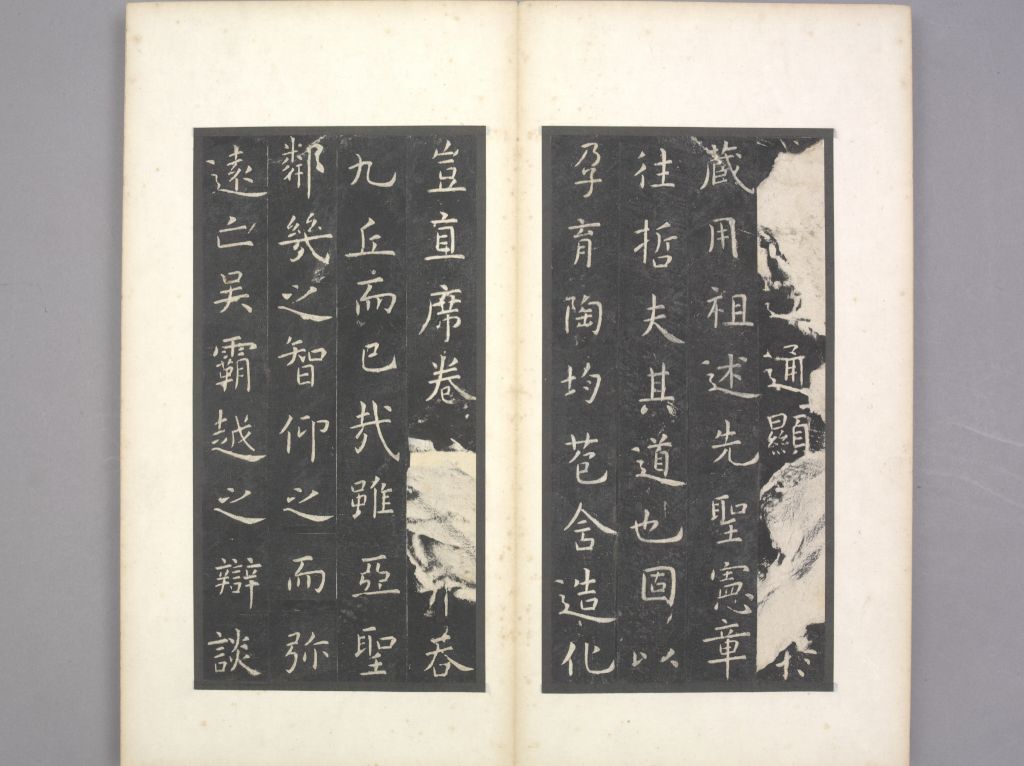 通顯於
藏用祖述先聖憲章
往哲夫其道也固以
孕育陶均苞含造化
豈直席卷并吞
九丘而已哉雖亞聖
鄰幾之智仰之而弥
遠亡吳霸越之辯談